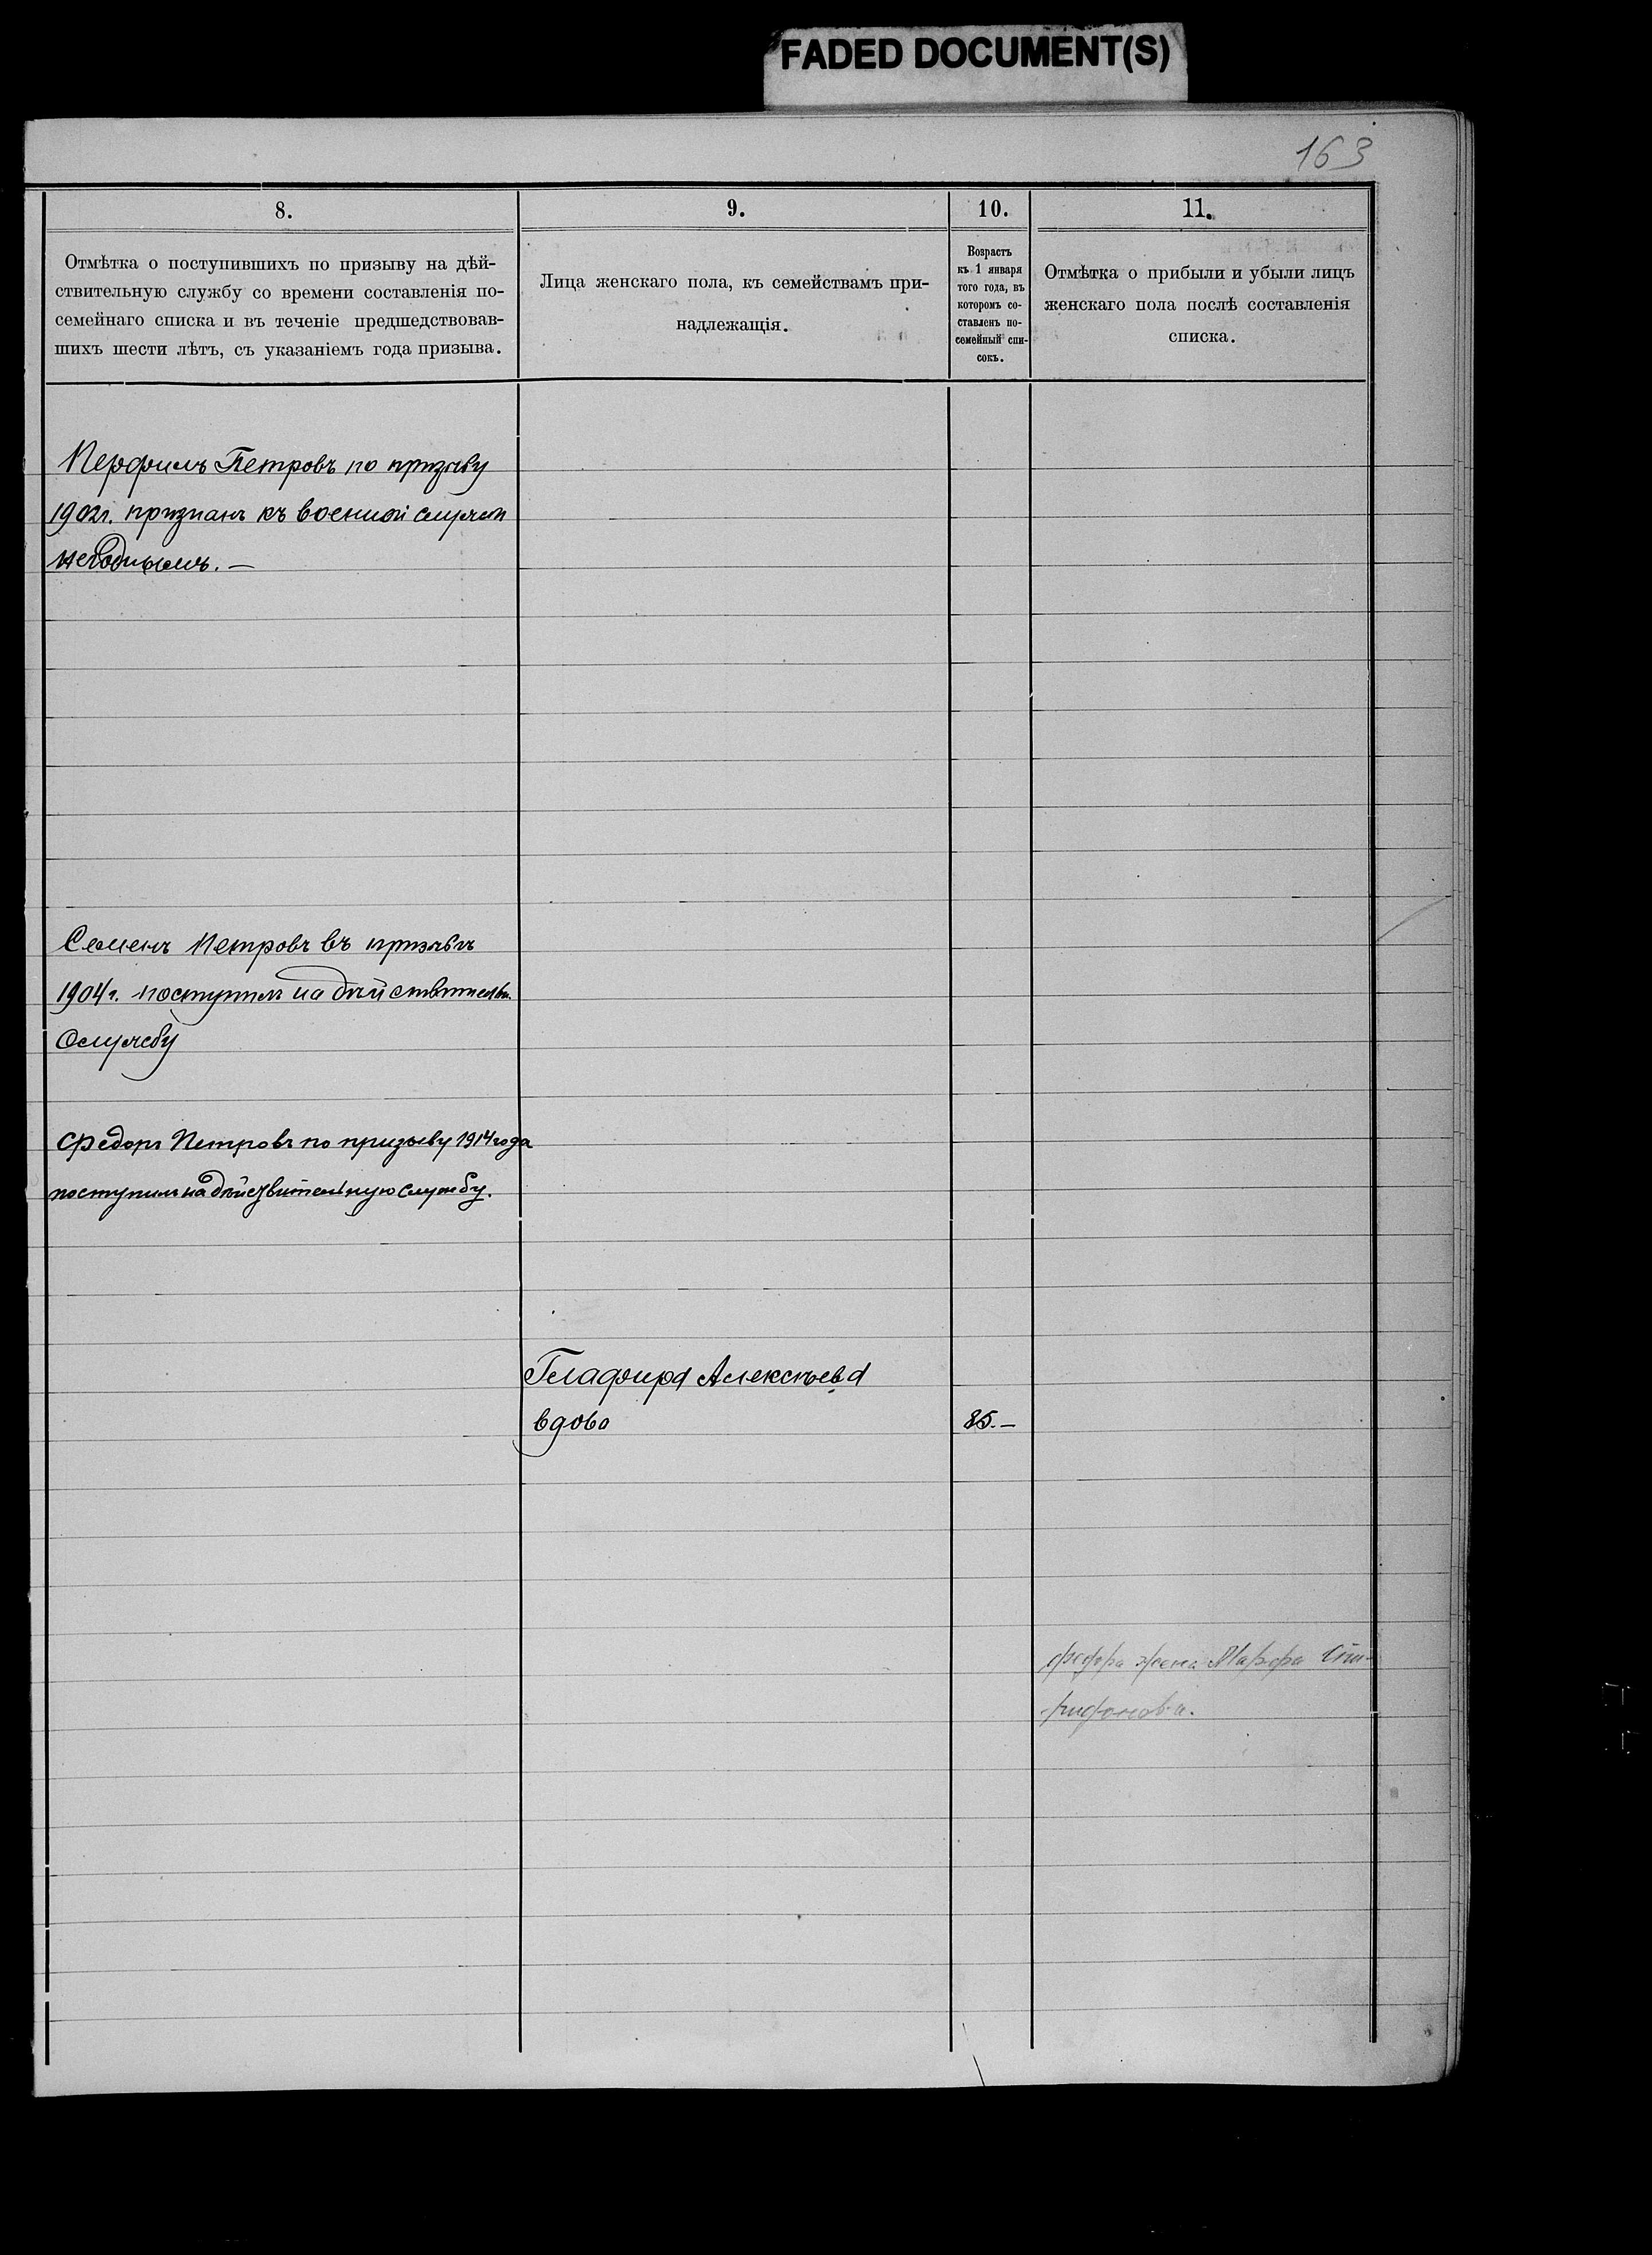 FADED DOCUMENT(S)
163
8.
Отмѣтка о поступившихъ по призыву на дѣй-
ствительную службу со времени составленія по-
семейнаго списка и въ теченіе предшедствовав-
шихъ шести лѣтъ, съ указаніемъ года призыва.
9.
Лица женскаго пола, къ семействамъ при-
надлежащія.
10.
Возрастъ
къ 1 января
того года, въ
которомъ со-
ставленъ по-
семейный спи-
сокъ.
11.
Отмѣтка о прибыли и убыли лицъ
женскаго пола послѣ составленія
списка.
Перфилъ Петровъ по призыву
1902г. признанъ къ военной службѣ
негоднымъ.—
Семенъ Петровъ въ призывъ
1904г. поступилъ на дѣйствительн.
службу
Федоръ Петровъ по призыву 1914 года
поступилъ на дѣйствительную службу.
Глафира Алексѣева
вдова
85.—
жена Марфа Спи-
ридонова.